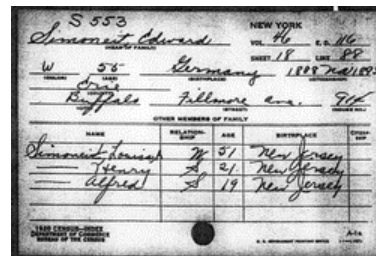 S 553
NEW YORK
Simoneit Edward
(HEAD OF FAMILY)
VOL. 46 E. D. 116
SHEET 18 LINE 88
W 55 Germany 1888 Na 1893
(COLOR) (AGE) (BIRTHPLACE) (CITIZENSHIP)
Erie
(COUNTY)
Buffalo Fillmore Ave. 914
(CITY) (STREET) (HOUSE NO.)
OTHER MEMBERS OF FAMILY
NAME RELATION-SHIP AGE BIRTHPLACE CITIZEN-SHIP
Simoneit Louisa W 51 New Jersey
— Henry S 21 New Jersey
— Alfred S 19 New Jersey
1920 CENSUS—INDEX
DEPARTMENT OF COMMERCE
BUREAU OF THE CENSUS
A-1a